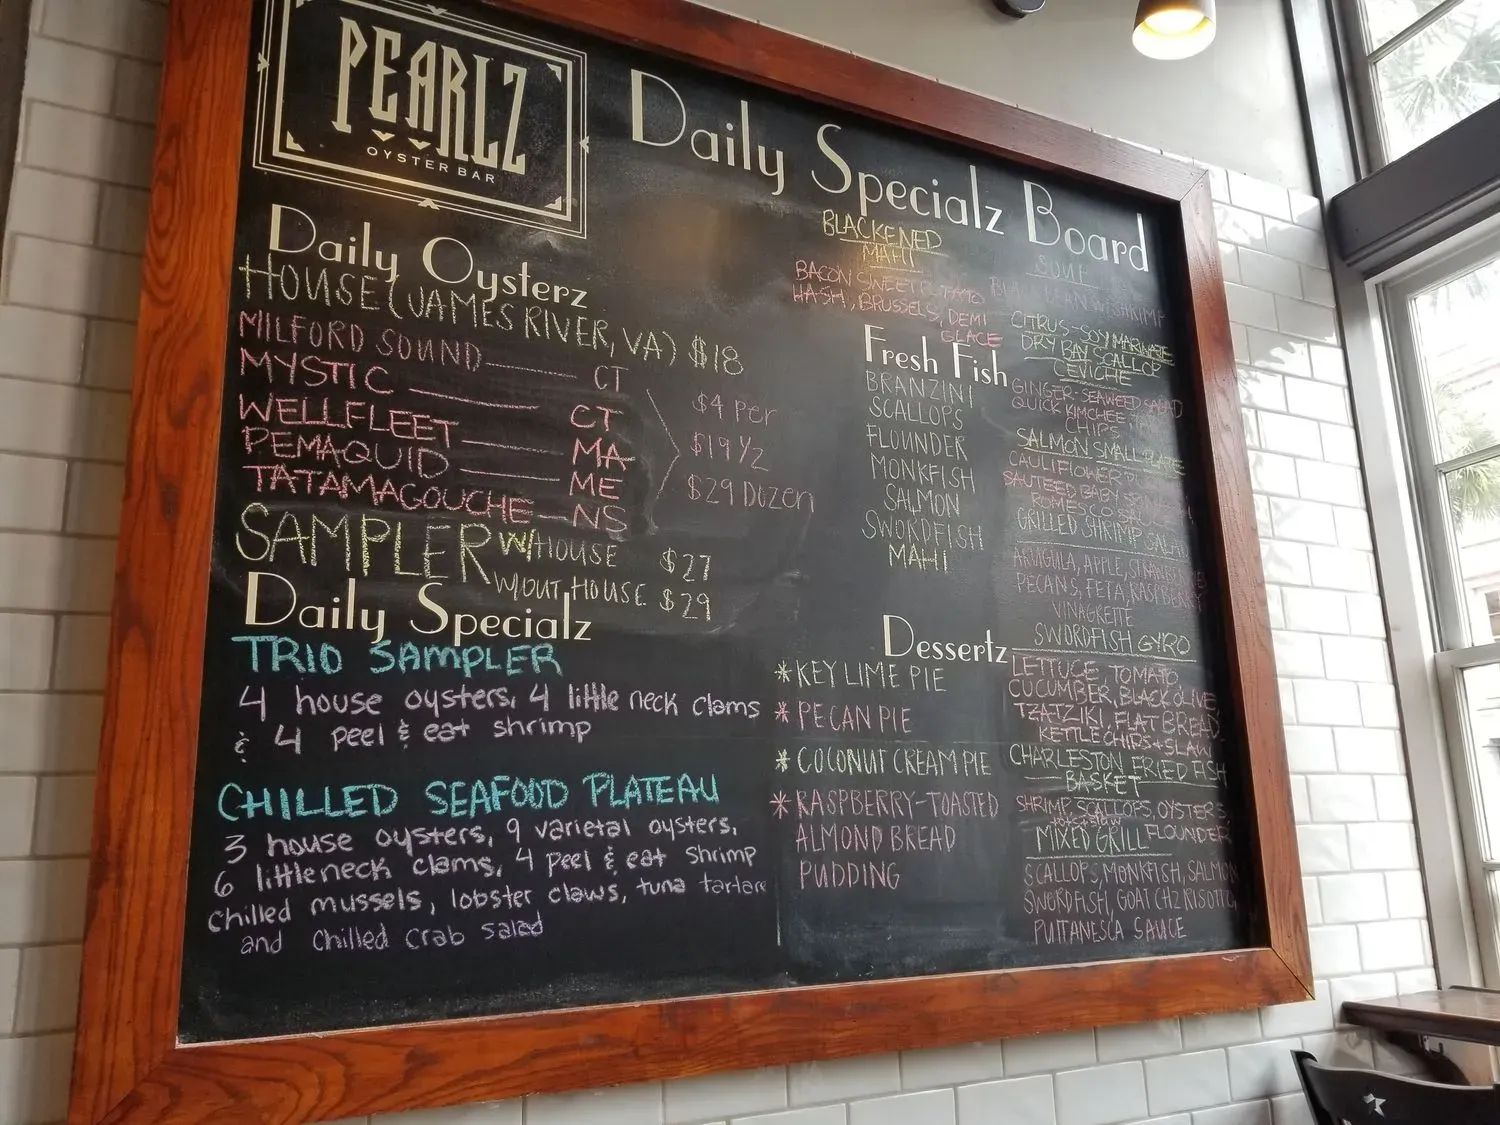 PEARLZ
OYSTER BAR
Daily Specialz Board
Daily Oysterz
HOUSE (JAMES RIVER, VA) $18
MILFORD SOUND CT
MYSTIC CT
WELLFLEET MA
PEMAQUID ME
TATAMAGOUCHE NS
$4 Per
$19 1/2
$29 Dozen
SAMPLER W/HOUSE $27
W/OUT HOUSE $29
Daily Specialz
TRIO SAMPLER
4 house oysters, 4 little neck clams
& 4 peel & eat shrimp
CHILLED SEAFOOD PLATEAU
3 house oysters, 9 varietal oysters,
6 littleneck clams, 4 peel & eat shrimp
chilled mussels, lobster claws, tuna tartare
and chilled crab salad
BLACKENED
MAHI
BACON SWEET POTATO
HASH, BRUSSELS, DEMI
GLACE
Fresh Fish
BRANZINI
SCALLOPS
FLOUNDER
MONKFISH
SALMON
SWORDFISH
MAHI
Dessertz
* KEY LIME PIE
* PECAN PIE
* COCONUT CREAM PIE
* RASPBERRY-TOASTED
ALMOND BREAD
PUDDING
SOUP
SHRIMP
CITRUS-SOY MARINATE
DRY BAY SCALLOP
CEVICHE
GINGER-SEAWEED SALAD
QUICK KIMCHEE
CHIPS
SALMON SMALL PLATE
CAULIFLOWER
SAUTEED BABY
ROMESCO
GRILLED SHRIMP SALAD
ARUGULA, APPLE,
PECANS, FETA, RASPBERRY
VINAGRETTE
SWORDFISH GYRO
LETTUCE, TOMATO,
CUCUMBER, BLACK OLIVE,
TZATZIKI, FLAT BREAD,
KETTLE CHIPS + SLAW
CHARLESTON FRIED FISH
BASKET
SHRIMP, SCALLOPS, OYSTERS,
FLOUNDER
MIXED GRILL
SCALLOPS, MONKFISH, SALMON
SWORDFISH, GOAT CHZ RISOTTO,
PUTTANESCA SAUCE